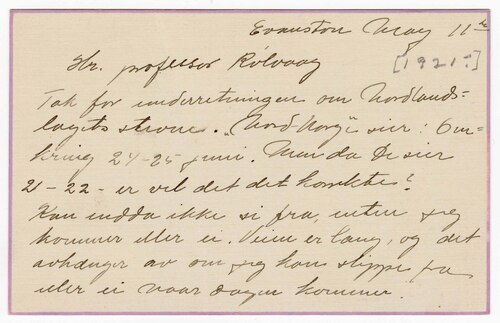 Evanston May 11th
[1921?]
Hr. professor Rölvaag
Tak for underretningen om Nordlands-
lagets stevne. "Nord Norge" sier: Om-
kring 24-25 juni. Men da De sier
21-22- er vel det det korrekte?
Kan endda ikke si fra, enten jeg
kommer eller ei. Veien er lang, og det
avhænger av om jeg kan slippe fra
eller ei naar dagen kommer.